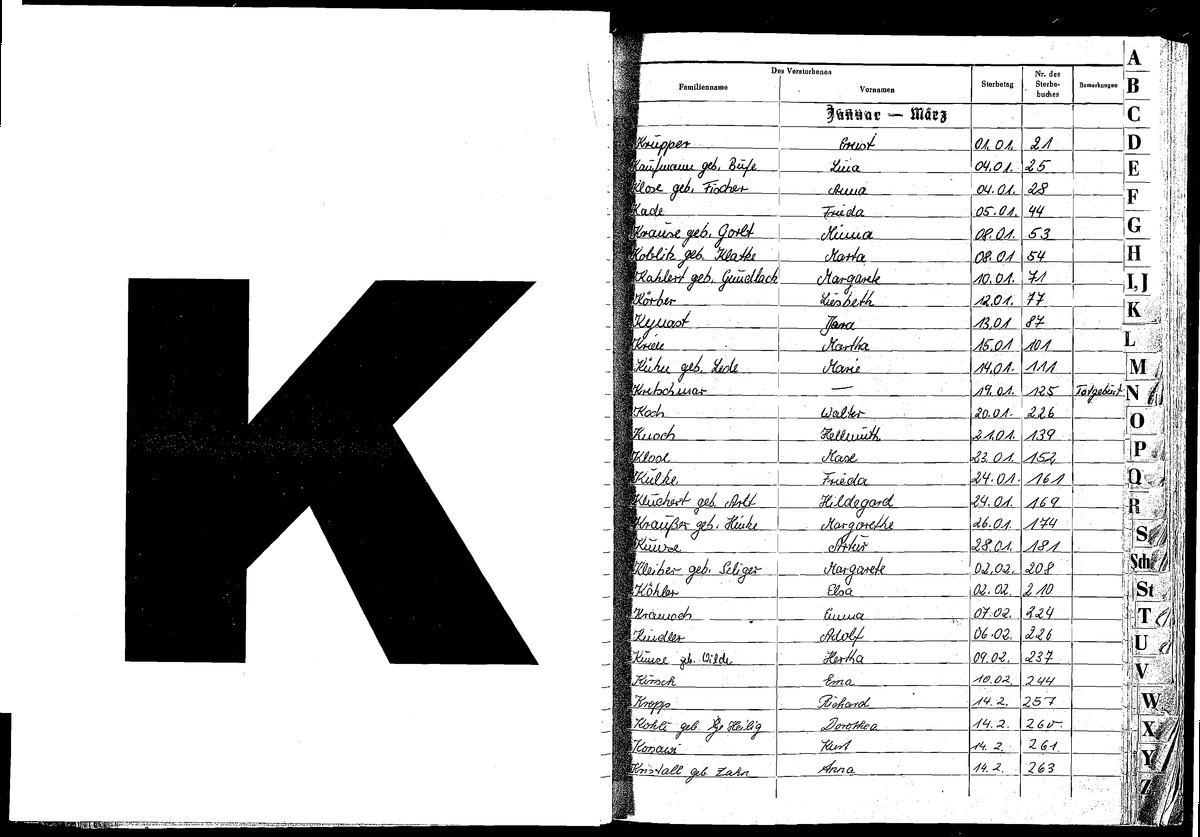 K
Des Verstorbenen
Familienname Vornamen Sterbetag Nr. des Sterbe-buches Bemerkungen
Januar — März
Krupper Ernst 01.01. 21
Kaufmann geb. Bufe Lina 04.01. 25
Klose geb. Fischer Anna 04.01. 28
Kade Frieda 05.01. 44
Krause geb. Minna 08.01. 53
Koblitz geb. Klatke Marta 08.01 54
Kahlert geb. Gundlach Margarete 10.01. 71
Körber Liesbeth 12.01. 77
Kynast 13.01 87
Martha 15.01 101
Kühn geb. Marie 14.01. 111
Kretschmar — 19.01. 125 Totgeburt
Koch Walter 20.01. 226
Knoch Hellmuth 21.01. 139
Klose 23.01. 152
Kulke Frieda 24.01. 161
Kluchert geb. Arlt Hildegard 24.01. 169
Kraußer geb. Margarethe 26.01. 174
Kunze Artur 28.01. 181
Kleiber geb. Seliger Margarete 02.02. 208
Köhler Elsa 02.02. 210
Emma 07.02. 224
Kindler Adolf 06.02. 226
Kunze geb. Wilde Hertha 09.02. 237
Kirsch Erna 10.02. 244
Kropp Richard 14.2. 257
geb. Heilig Dorothea 14.2. 260.
Kurt 14.2. 261
Kristall geb. Zahn Anna 14.2. 263
A
B
C
D
E
F
G
H
I, J
K
L
M
N
O
P
Q
R
S
Sch
St
T
U
V
W
X
Y
Z